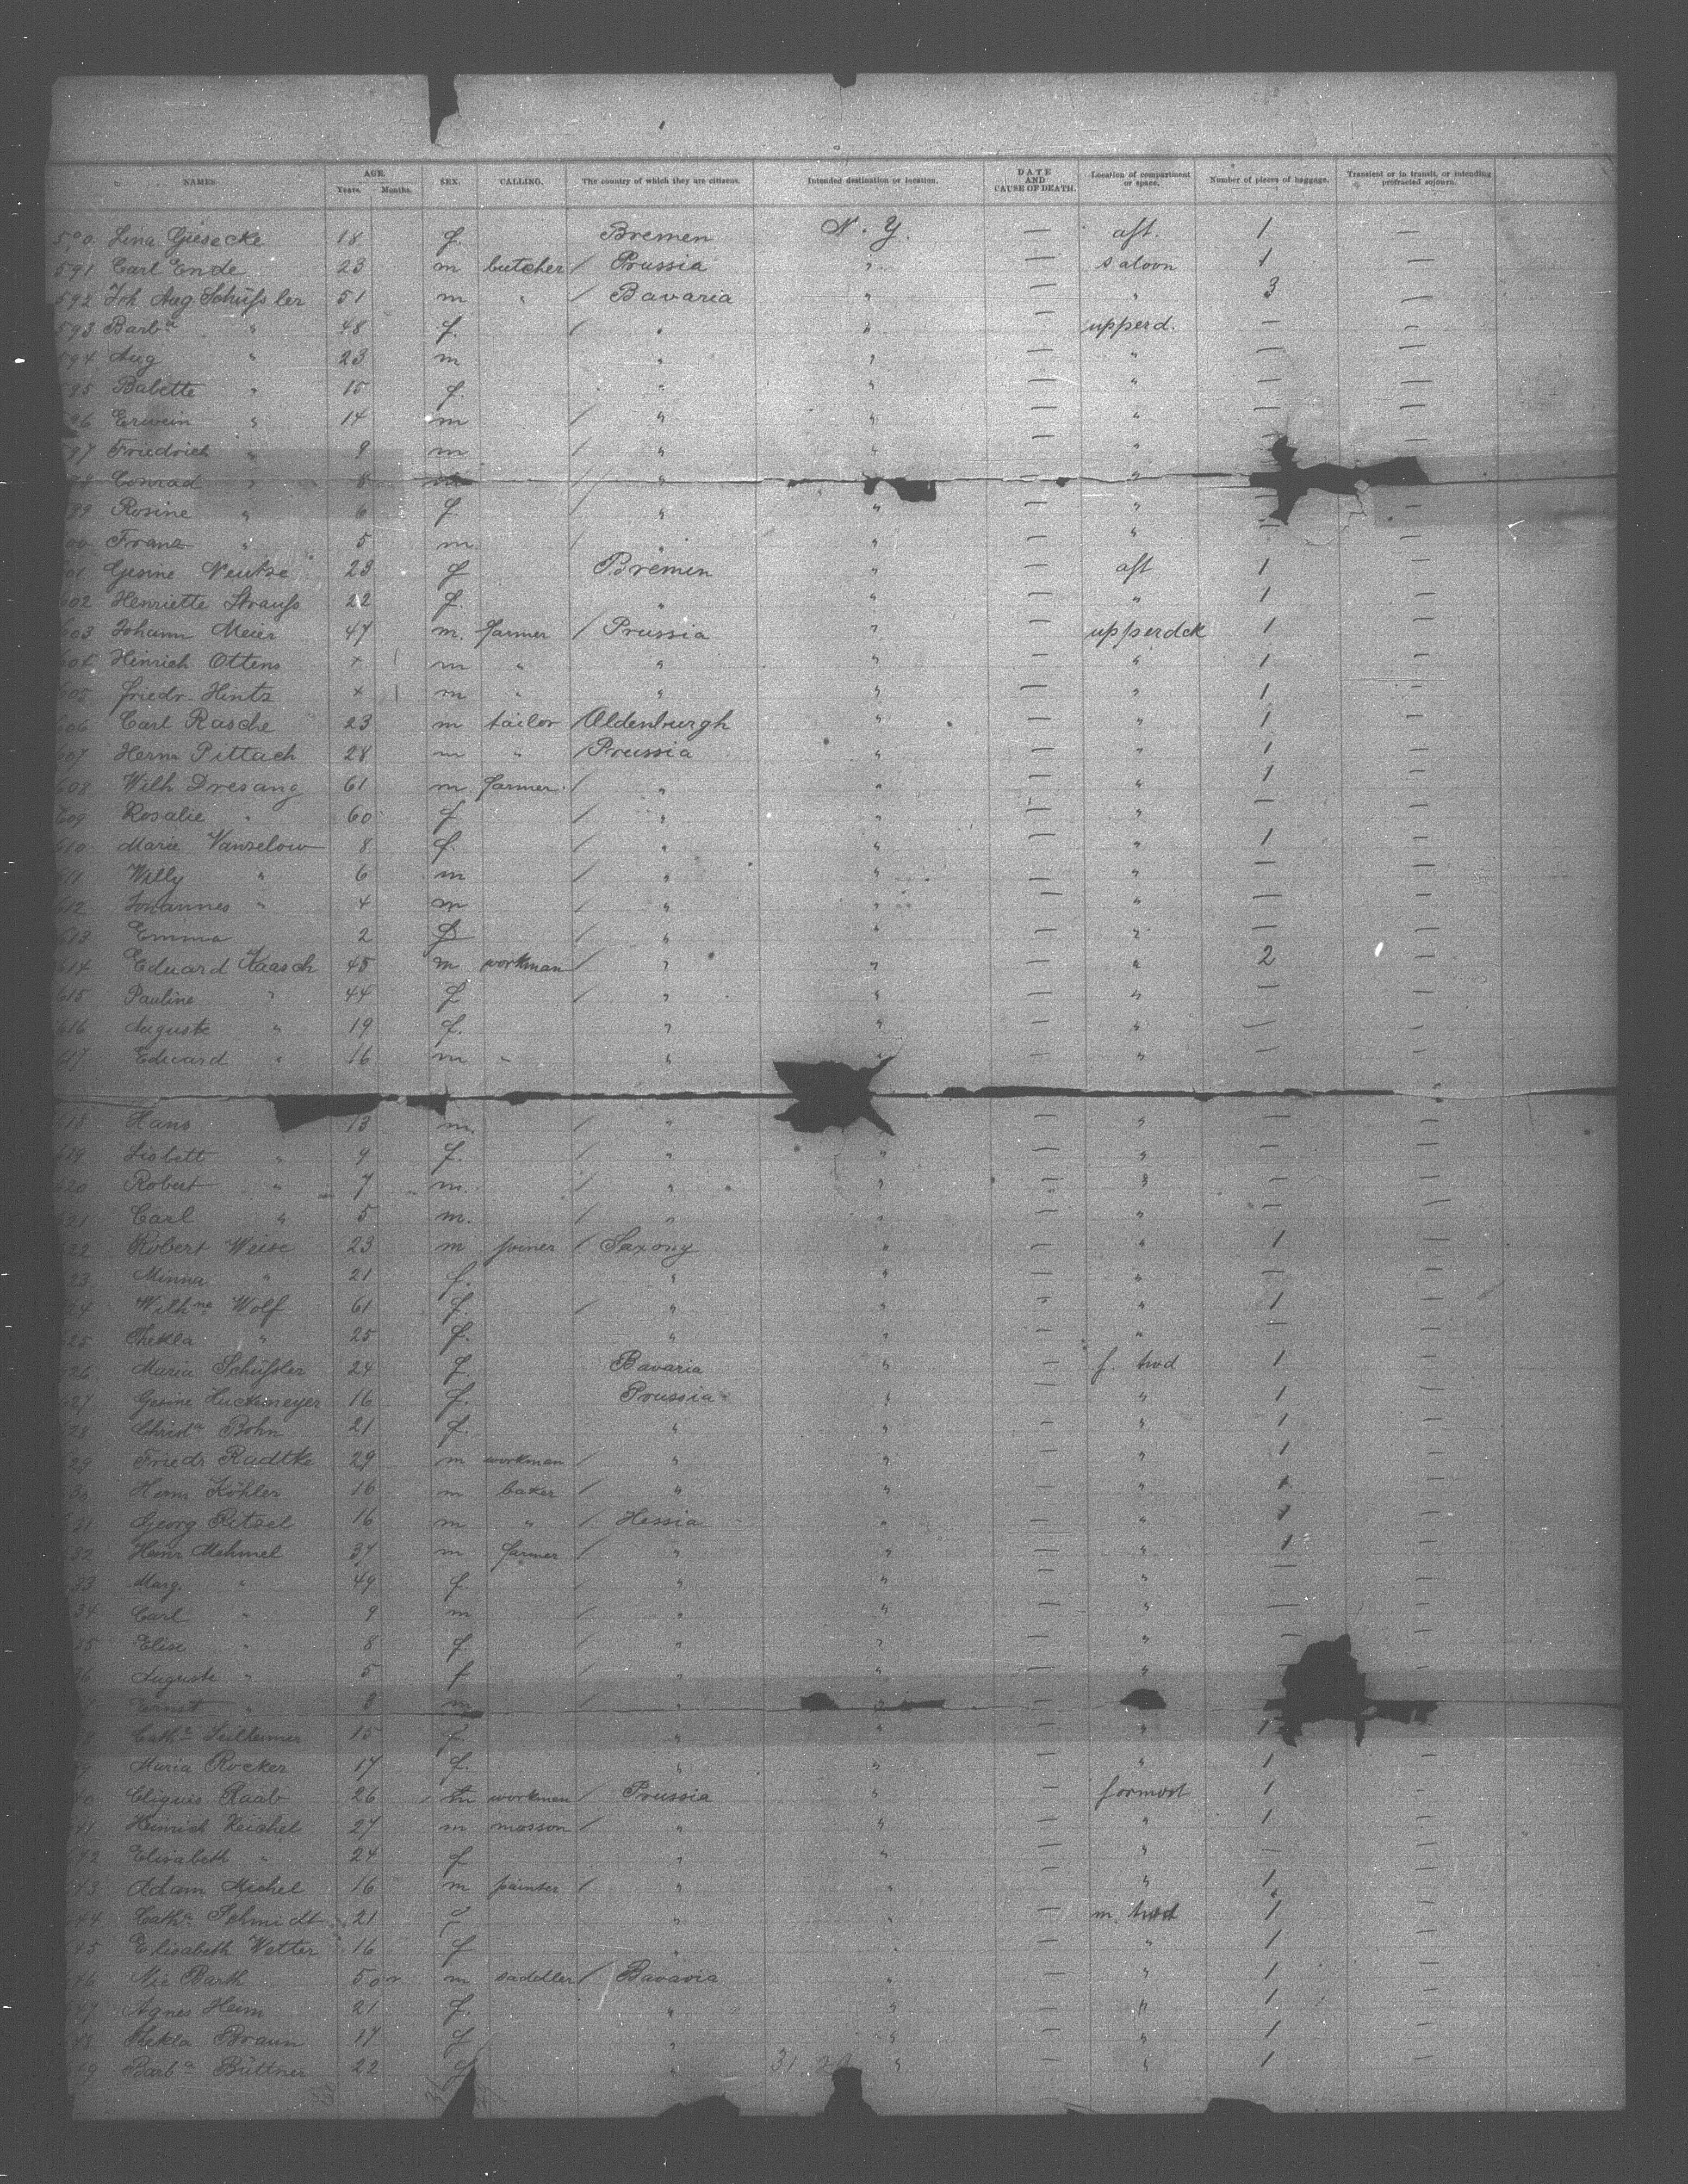 NAMES AGE. Years. Months. SEX. CALLING. The country of which they are citizens. Intended destination or location. DATE AND CAUSE OF DEATH. Location of compartment or space. Number of pieces of baggage. Transient or in transit, or intending protracted sojourn.
Lina Giesecke 18 f. Bremen N. Y. — aft. 1 —
591 Carl Ende 23 m butcher / Prussia " — saloon 1 —
592 Joh Aug Schüfsler 51 m " / Bavaria " — " 3 —
593 Barba " 48 f. / " " — upperd. — —
594 Aug " 23 m " " — " — —
595 Babette " 15 f. " " — " — —
96 Erwein " 14 m / " " — " — —
97 Friedrich " 9 m / " " — " —
98 Conrad " 8 m / " " "
99 Rosine " 6 f. / " " — " — —
600 Franz " 5 m. / " " — " — —
601 Gesine Neutze 23 f Bremen " — aft 1 —
602 Henriette Straufs 22 f. " " — " 1 —
603 Johann Meier 47 m. farmer / Prussia " — upperdck 1 —
604 Hinrich Ottens + m " " " — " 1 —
605 Friedr. Hintz + m " " " — " 1 —
606 Carl Rasche 23 m tailor / Oldenburgh " — " 1 —
607 Herm Pittach 28 m " / Prussia " — " 1 —
608 Wilh Dresang 61 m farmer / " " — " 1 —
609 Rosalie " 60 f / " " — " — —
610 Marie Vanselow 8 f. / " " — " 1 —
611 Willy " 6 m / " " — " — —
612 Johannes " 4 m / " " — " — —
613 Emma 2 f / " " — " — —
614 Eduard Haasch 45 m workman / " " — " 2 —
615 Pauline " 44 f / " " — " — —
616 Auguste " 19 f. " " — " — —
617 Eduard " 16 m " " " — " — —
618 Hans 13 m. / " — " — —
619 Lisbett " 9 f. / " " — " — —
620 Robert " 7 m. / " " — " — —
621 Carl " 5 m. / " " — " — —
622 Robert Weise 23 m joiner / Saxony " — " 1 —
23 Minna " 21 f. " " — " — —
24 Wilhne Wolf 61 f. / " " — " 1 —
25 Thekla " 25 f. " " — " — —
26 Maria Schüfsler 24 f. Bavaria " — f. twd 1 —
627 Gesine Huckemeyer 16 f. Prussia " — " 1 —
28 Christa Bohn 21 f. " " — " 1 —
29 Friedr Radtke 29 m workman / " " — " 1 —
30 Herm Köhler 16 m baker / " " — " 1 —
31 Georg Ritzel 16 m " / Hessia " — " 1 —
32 Heinr Mehmel 37 m farmer / " " — " 1 —
33 Marg. " 49 f / " " — " — —
34 Carl " 9 m / " " — " — —
35 Elise " 8 f. / " " — " — —
36 Auguste " 5 f / " " — " —
Ernst " 8 m / " " —
38 Catha 15 f. " " — " 1 —
39 Maria Rocker 17 f. " " — " 1 —
40 Raab 26 m workman / Prussia " — formost 1 —
41 Heinrich Reichel 27 m mosson / " " — " 1 —
42 Elisabeth " 24 f " " — " — —
43 Adam Michel 16 m painter / " " — " 1 —
44 Catha Schmidt 21 f " " — m. twd 1 —
45 Elisabeth Vetter 16 f " " — " 1 —
46 Nic Barth 50 m saddler / Bavaria " — " 1 —
47 Agnes Heim 21 f. " " — " 1 —
48 Thekla Braun 17 f " " — " 1 —
49 Barba Büttner 22 f " 31 29 " — " 1 —